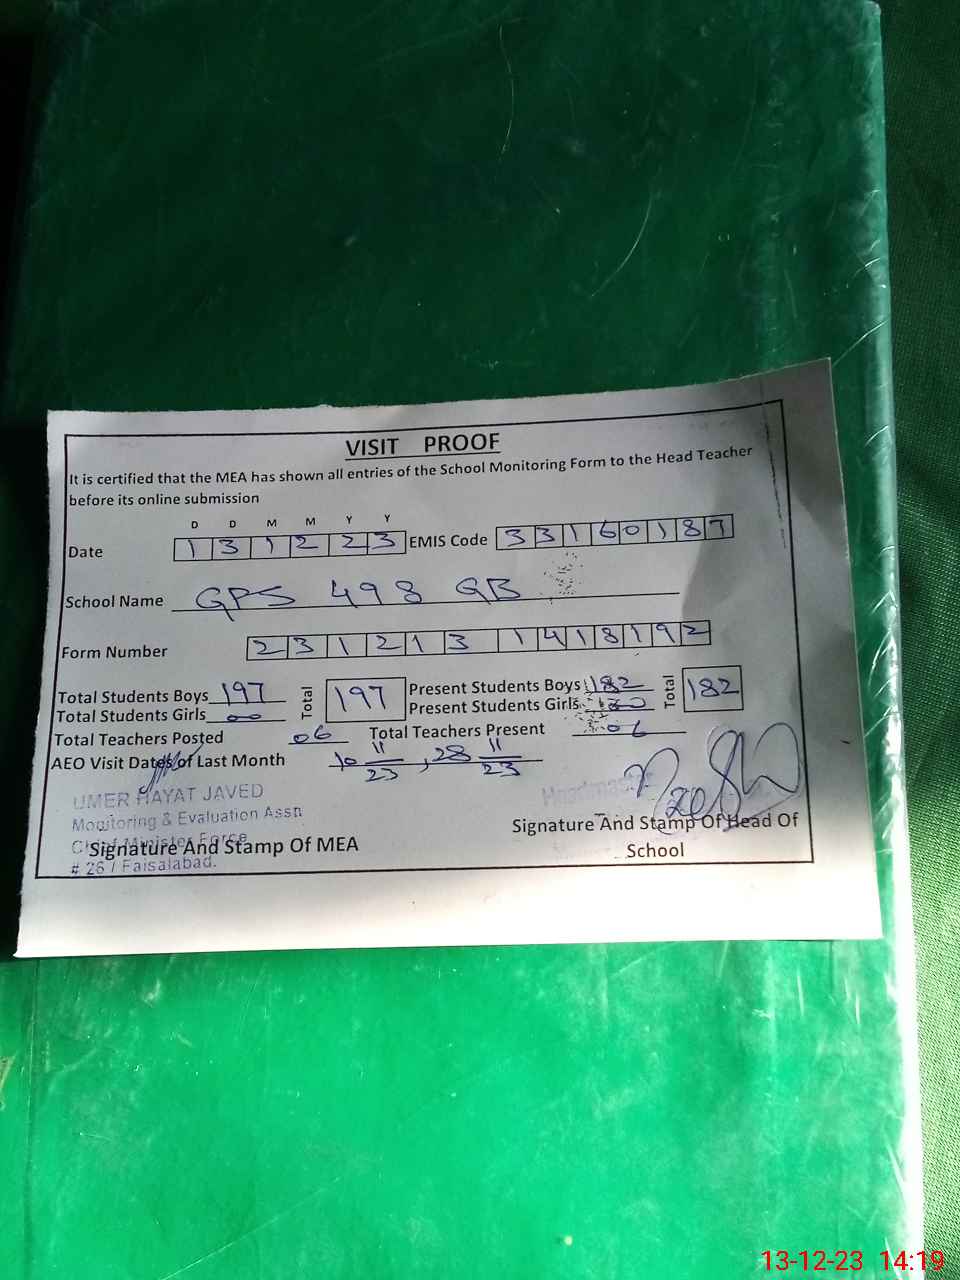 VISIT PROOF
It is certified that the MEA has shown all entries of the School Monitoring Form to the Head Teacher
before its online submission
D D M M Y Y
Date 1 3 1 2 2 3 EMIS Code 3 3 1 6 0 1 8 7
School Name GPS 498 GB
Form Number 2 3 1 2 1 3 1 4 1 8 1 9 2
Total Students Boys 197 Total 197 Present Students Boys 182 Total 182
Total Students Girls 00 Present Students Girls
Total Teachers Posted 06 Total Teachers Present 06
AEO Visit Dates of Last Month 10 11/23, 28 11/23
UMER HAYAT JAVED
Monitoring & Evaluation Asstt
Chief Minister Force
# 267 Faisalabad.
Signature And Stamp Of MEA
Headmaster
Signature And Stamp Of Head Of
School
13-12-23 14:19